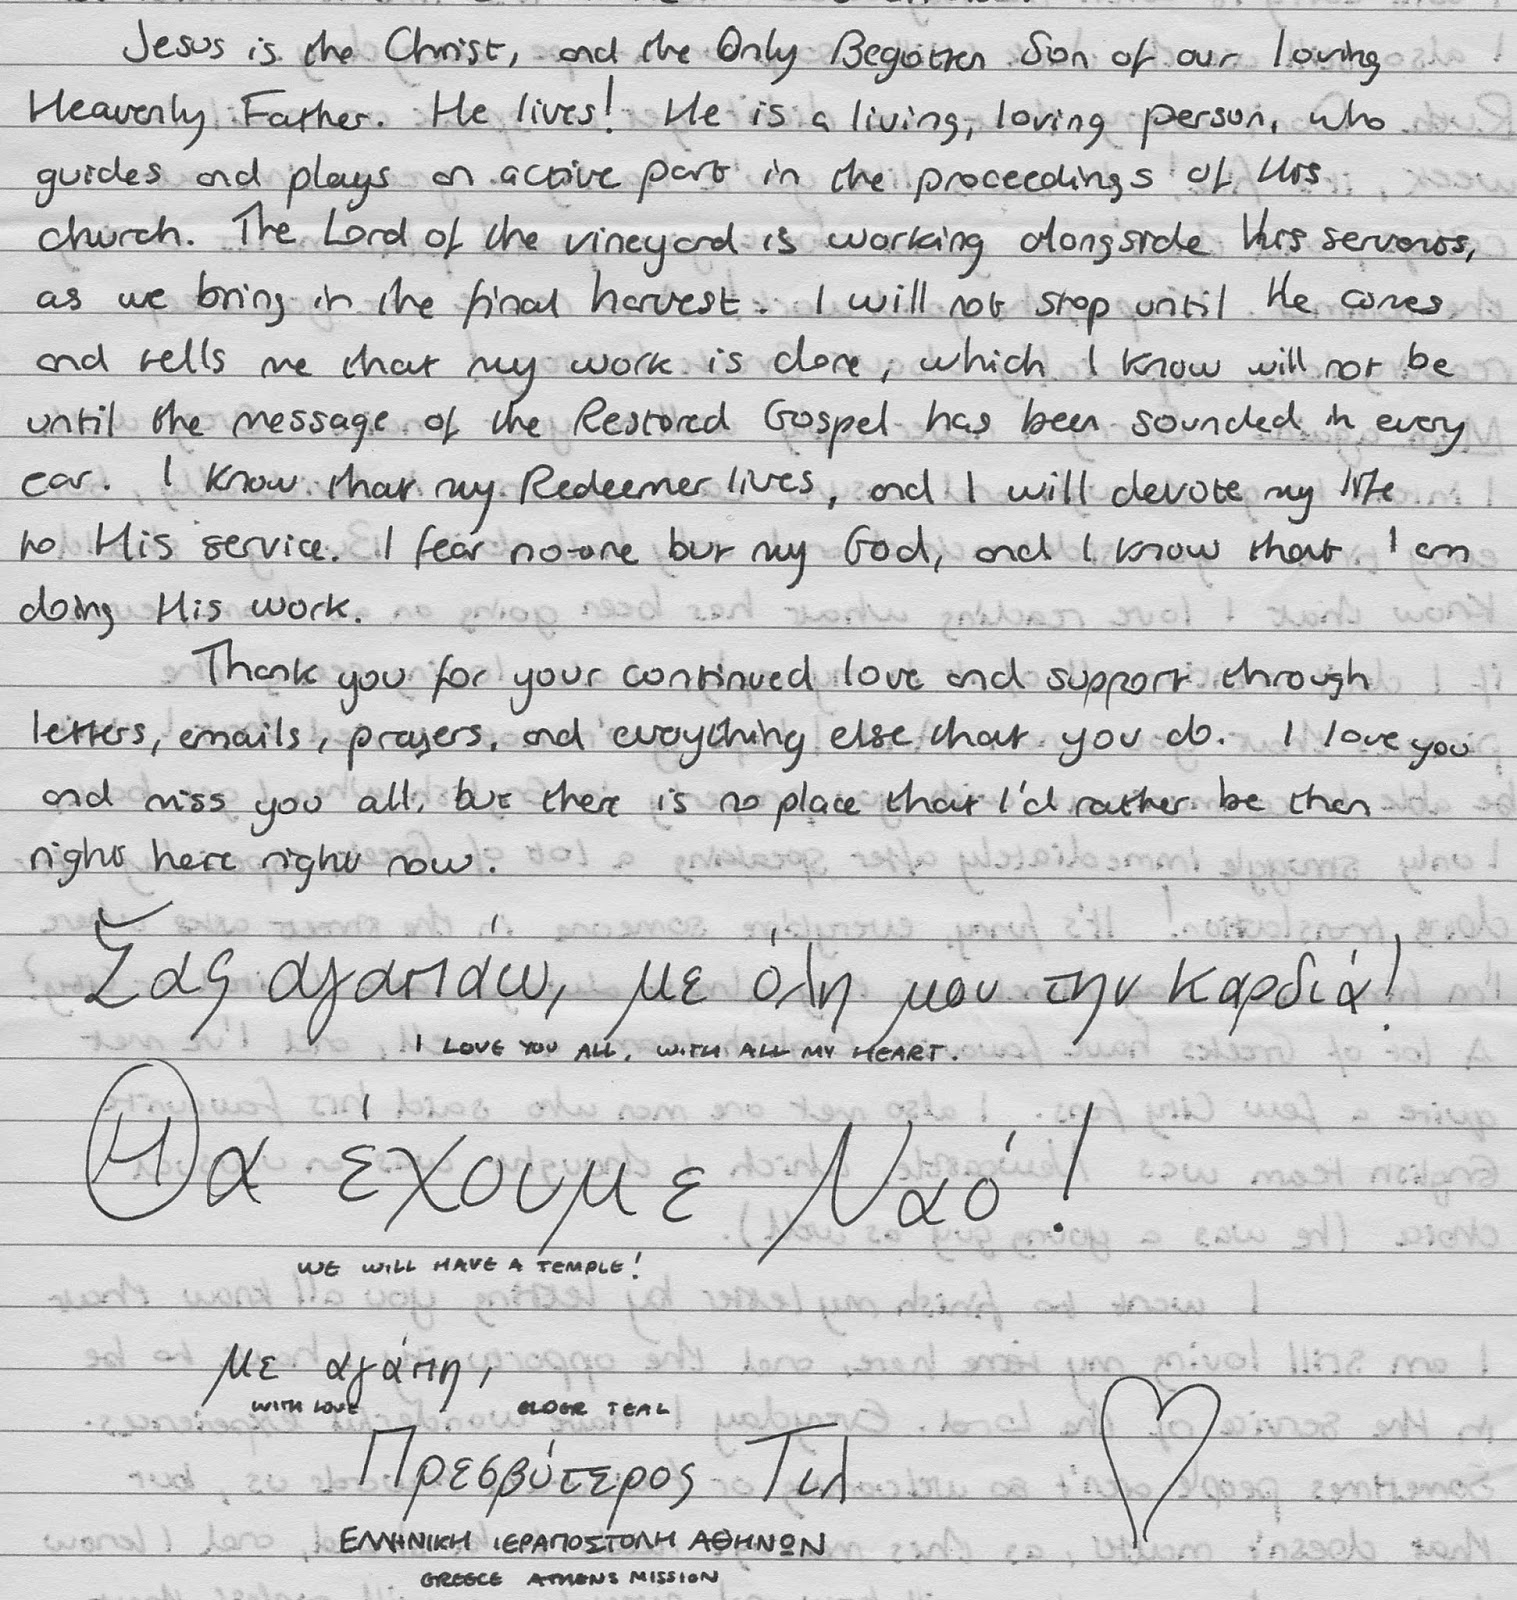 Jesus is the Christ, and the Only Begotten Son of our loving
Heavenly Father. He lives! He is a living, loving person, who
guides and plays an active part in the proceedings of His
church. The Lord of the vineyard is working alongside His servants,
as we bring in the final harvest. I will not stop until He comes
and tells me that my work is done, which I know will not be
until the message of the Restored Gospel has been sounded in every
ear. I know that my Redeemer lives, and I will devote my life
to His service. I fear no-one but my God, and I know that I am
doing His work.
Thank you for your continued love and support through
letters, emails, prayers, and everything else that you do. I love you
and miss you all, but there is no place that I'd rather be then
right here right now.
Σας αγαπάω, με όλη μου την καρδιά!
I LOVE YOU ALL, WITH ALL MY HEART.
Θα έχουμε Ναό!
WE WILL HAVE A TEMPLE!
με αγάπη,
WITH LOVE ELDER TEAL
Πρεσβύτερος Τιλ
ΕΛΛΗΝΙΚΗ ΙΕΡΑΠΟΣΤΟΛΗ ΑΘΗΝΩΝ
GREECE ATHENS MISSION